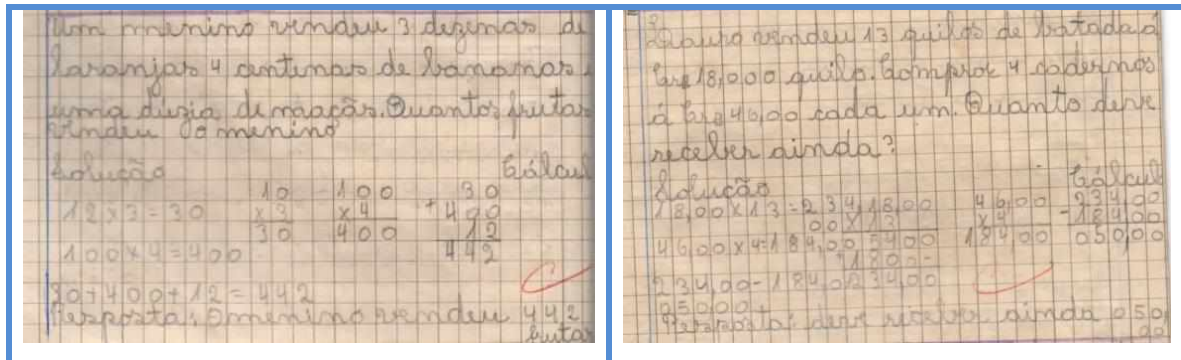 um menino vendeu 3 dezenas de
laranjas 4 centenas de bananas e
uma dúzia de maação. Quantos frutas
vendeu o menino
Solução Cálcul
12x3=30
100x4=400
10
x3
30
100
x4
400
30
+400
12
442
30+400+12=442
Resposta: O menino vendeu 442
frutas
Lauro vendeu 13 quilos de batada á
18,0,00 quilo. Comprou 4 cadernos
á 46,00 cada um. Quanto deve
receber ainda?
Solução Cálcul
18,00x13=234,18,00
00x13
46,00x4=184,00,5400
+1800-
234,00-184,0,23400
05000
46,00
x4
184,00
234,00
-184,00
050,00
Resposta: deve receber ainda 050,
00